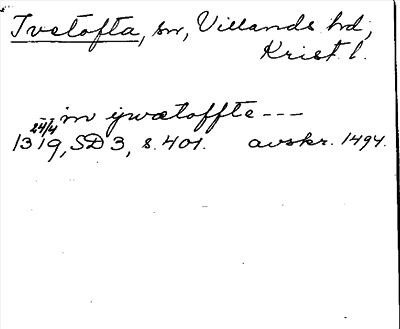 Tvetofta, sn, Villands hd,
Krist l.
in ywætoffte ---
24/4
1319, SD 3, s. 401. avskr. 1494.